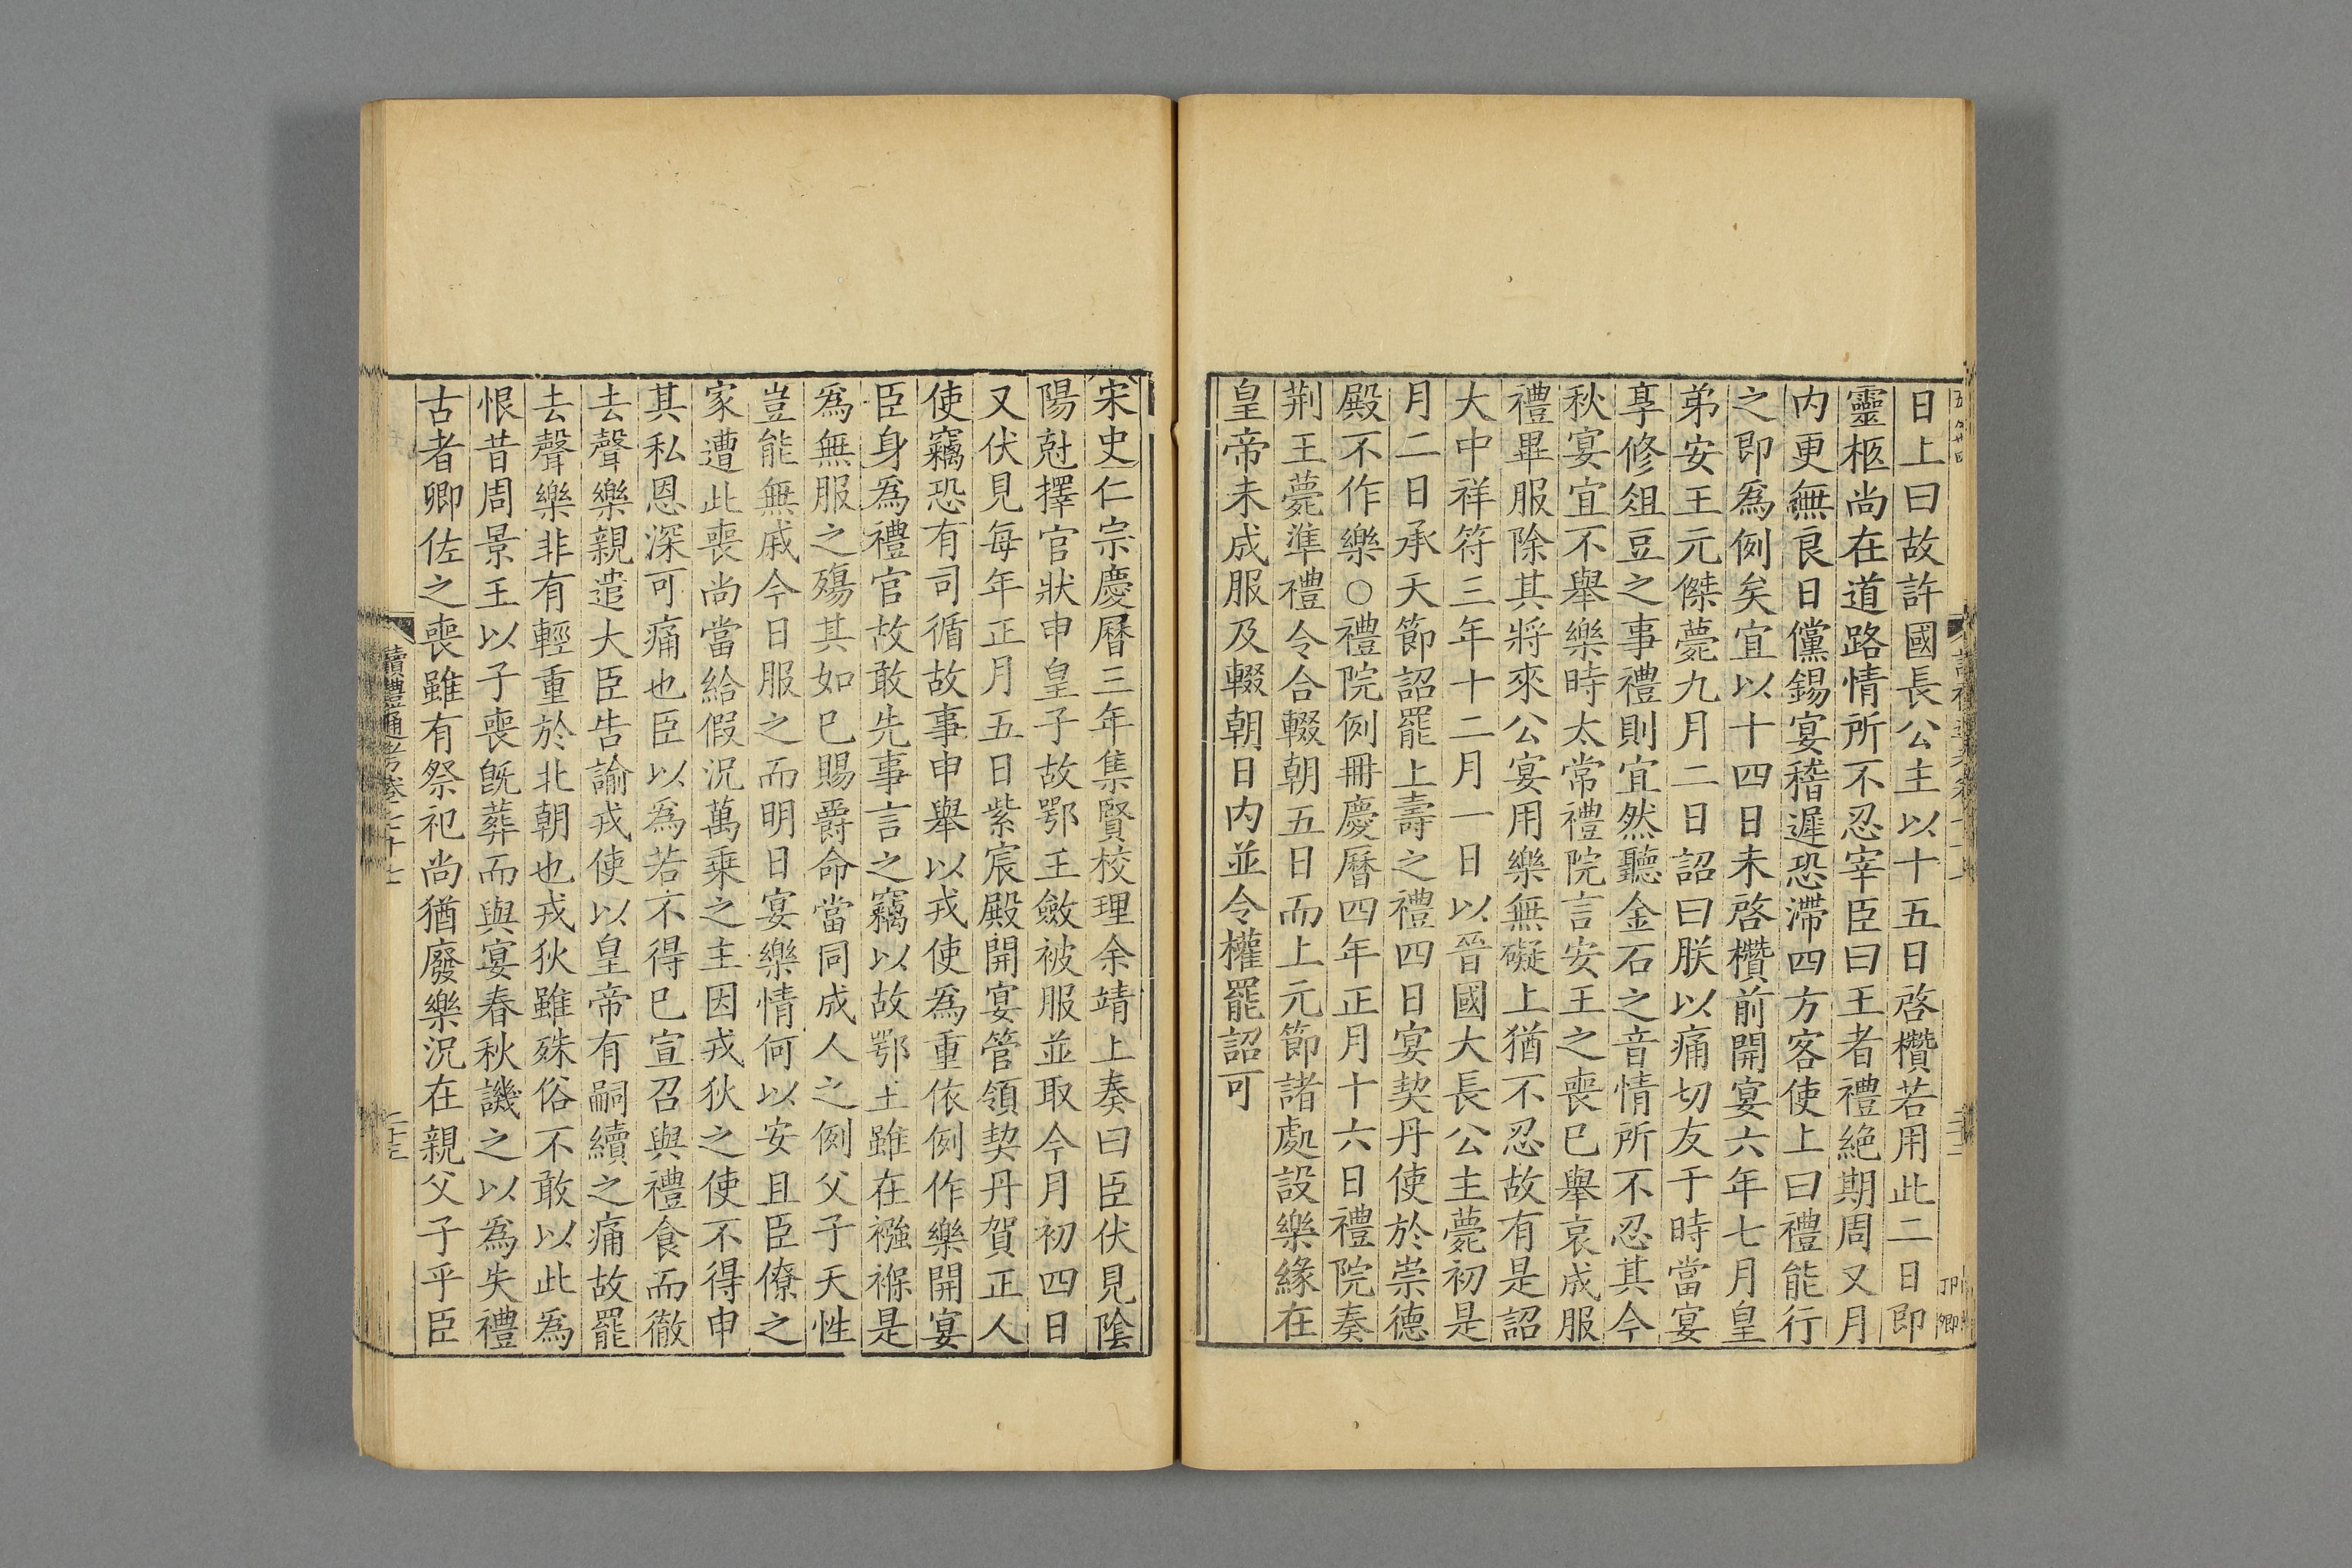 日上曰故許國長公主以十五日啓欑若用此二日即
靈柩尚在道路情所不忍宰臣曰王者禮絶期周又月
内更無良日儻錫宴稽遲恐滯四方客使上曰禮能行
之即爲例矣宜以十四日未啓欑前開宴六年七月皇
弟安王元傑薨九月二日詔曰朕以痛切友于時當宴
享修俎豆之事禮則宜然聽金石之音情所不忍其今
秋宴宜不舉樂時太常禮院言安王之喪已舉哀成服
禮畢服除其將來公宴用樂無礙上猶不忍故有是詔
大中祥符三年十二月一日以晉國大長公主薨初是
月二日承天節詔罷上壽之禮四日宴契丹使於崇德
殿不作樂○禮院例冊慶曆四年正月十六日禮院奏
荆王薨準禮令合輟朝五日而上元節諸處設樂緣在
皇帝未成服及輟朝日内並令權罷詔可
宋史仁宗慶曆三年集賢校理余靖上奏曰臣伏見陰
陽尅擇官狀申皇子故鄂王斂被服並取今月初四日
又伏見每年正月五日紫宸殿開宴管領契丹賀正人
使竊恐有司循故事申舉以戎使爲重依例作樂開宴
臣身爲禮官故敢先事言之竊以故鄂王雖在襁褓是
爲無服之殤其如已賜爵命當同成人之例父子天性
豈能無戚今日服之而明日宴樂情何以安且臣僚之
家遭此喪尚當給假況萬乘之主因戎狄之使不得申
其私恩深可痛也臣以爲若不得已宣召與禮食而徹
去聲樂親遣大臣告諭戎使以皇帝有嗣續之痛故罷
去聲樂非有輕重於北朝也戎狄雖殊俗不敢以此爲
恨昔周景王以子喪旣葬而與宴春秋譏之以爲失禮
古者卿佐之喪雖有祭祀尚猶廢樂況在親父子乎臣
讀禮通考卷